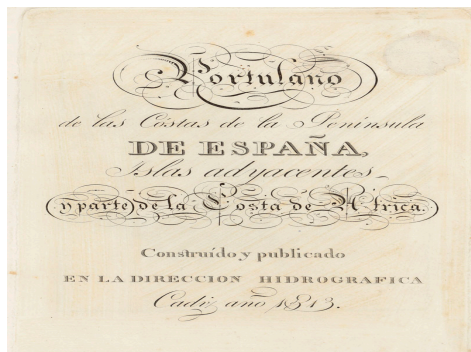 Portulano
de las Cóstas de la Península
DE ESPAÑA,
Islas adyacentes
y parte de la Costa de Africa.
Construído y publicado
EN LA DIRECCION HIDROGRAFICA
Cadiz año 1813.